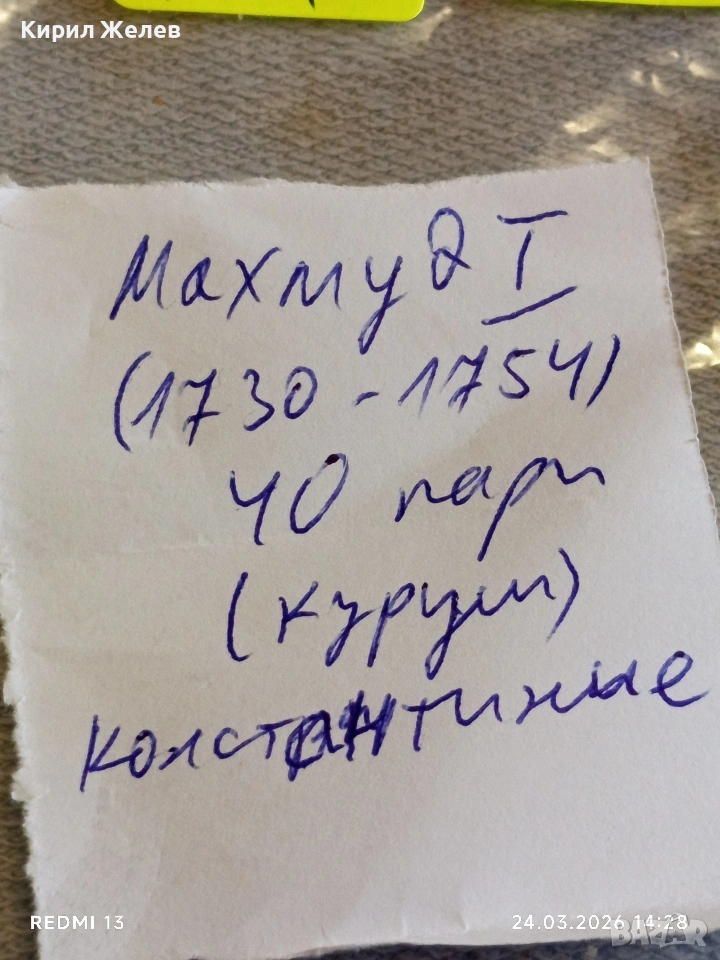 Кирил Желев
Махмуд I
(1730-1754)
40 пари
(куруш)
REDMI 13
24.03.2026 14:28
BAZAR